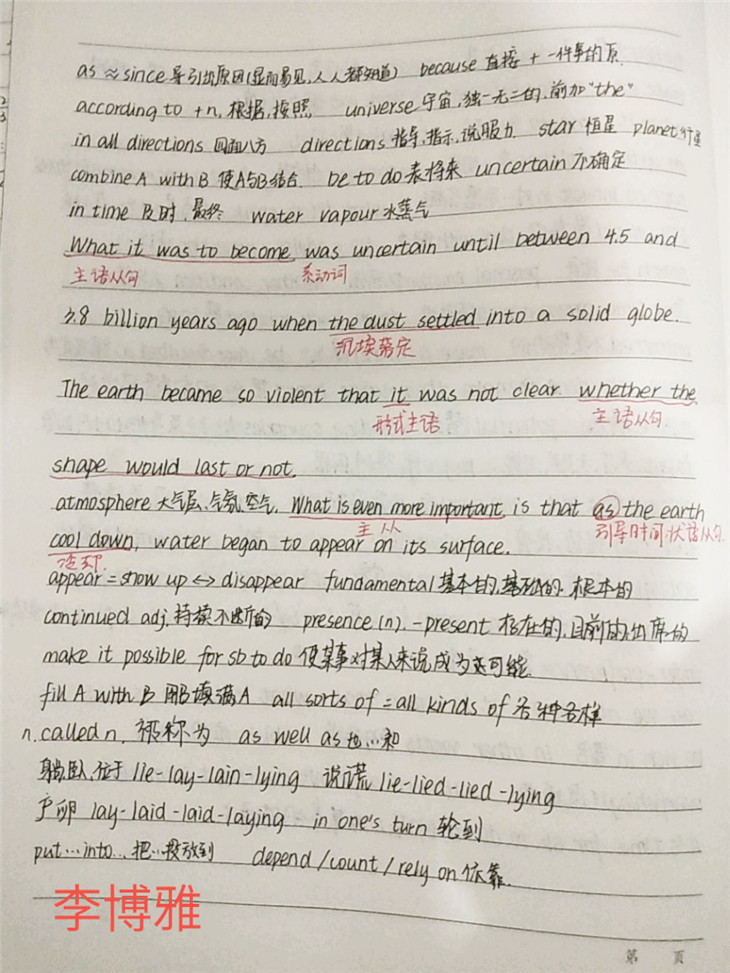 as≈since 导引出原因(显而易见,人人都知道) because 直接 + 一件事的原
according to +n, 根据,按照 universe 宇宙,独一无二的,前加"the"
in all directions 四面八方 directions 指导,指示,说服力. star 恒星 planet 行星
combine A with B 使A与B结合. be to do 表将来 uncertain 不确定
in time 及时,最终 water vapour 水蒸气
What it was to become was uncertain until between 4.5 and
主语从句 系动词
3.8 billion years ago when the dust settled into a solid globe.
沉埃落定
The earth became so violent that it was not clear whether the
形式主语 主语从句
shape would last or not.
atmosphere 大气层,气氛,空气. What is even more important is that as the earth
主从 引导时间状语从句.
cool down, water began to appear on its surface.
冷却
appear = show up ↔ disappear fundamental 基本的,基础的.根本的
continued adj.持续不断的 presence (n). -present 存在的,目前的,出席的
make it possible for sb to do 使某事对某人来说成为可能
fill A with B 用B填满A all sorts of = all kinds of 各种各样
n. called n. 被称为 as well as 也…和
躺卧,位于 lie-lay-lain-lying 说谎 lie-lied-lied-lying
产卵 lay-laid-laid-laying in one's turn 轮到
put…into… 把…投放到 depend/count/rely on 依靠.
李博雅
第 页